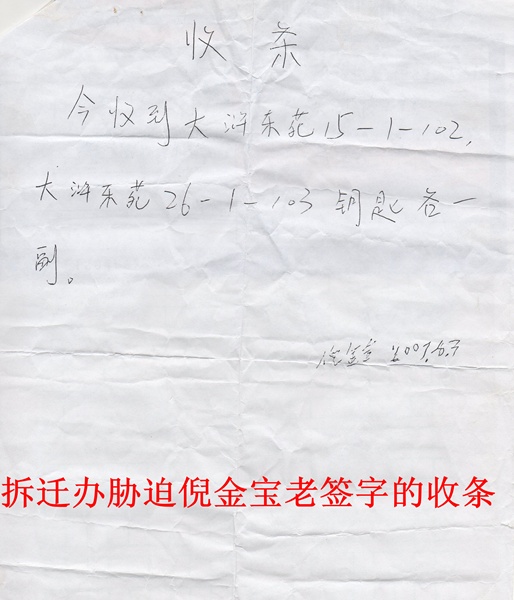 收条
今收到大浒东苑15-1-102,
大浒东苑26-1-103钥匙各一
副。
倪金宝
拆迁办胁迫倪金宝老签字的收条